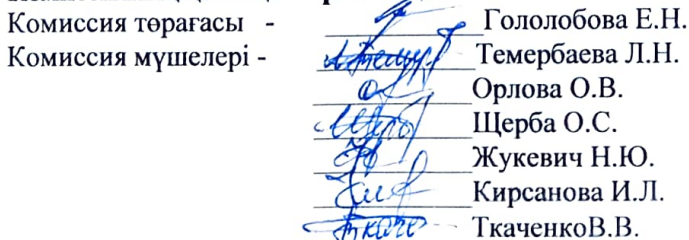 Комиссия төрағасы - Гололобова Е.Н.
Комиссия мүшелері - Темербаева Л.Н.
Орлова О.В.
Щерба О.С.
Жукевич Н.Ю.
Кирсанова И.Л.
ТкаченкоВ.В.